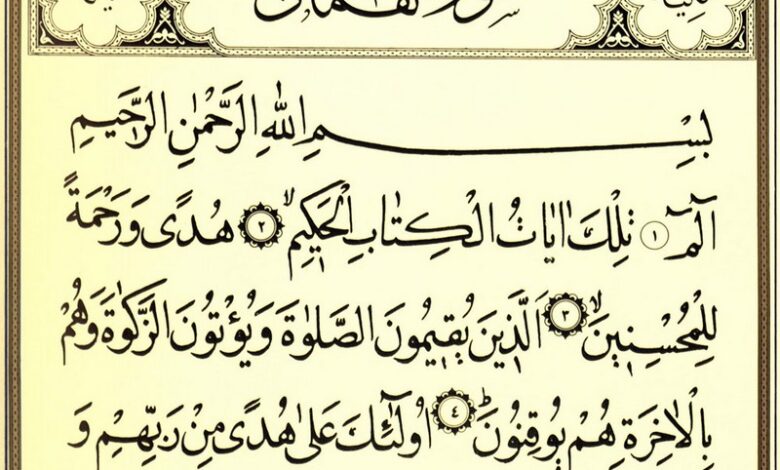 سورة لقمان
بِسْمِ اللهِ الرَّحْمٰنِ الرَّحِيمِ
الٓمٓ ١ تِلْكَ اٰيَاتُ الْكِتَابِ الْحَكِيمِۙ ٢ هُدًى وَرَحْمَةً
لِلْمُحْسِنِينَۙ ٣ اَلَّذِينَ يُقِيمُونَ الصَّلٰوةَ وَيُؤْتُونَ الزَّكٰوةَ وَهُمْ
بِالْاٰخِرَةِ هُمْ يُوقِنُونَۜ ٤ اُولٰٓئِكَ عَلٰى هُدًى مِنْ رَبِّهِمْ وَ